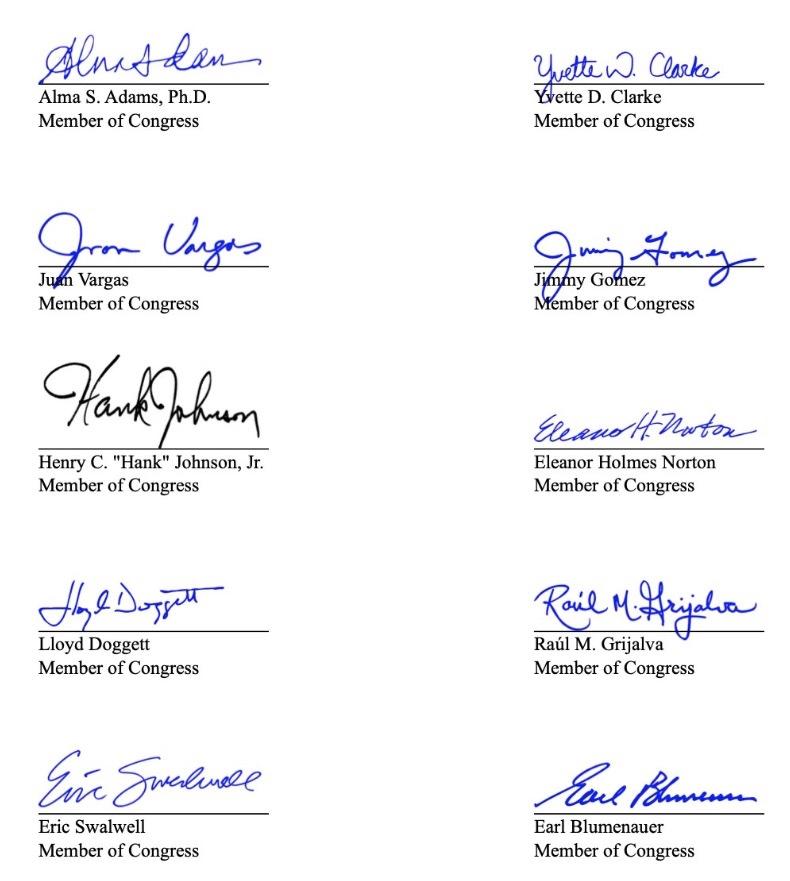 Alma S Adams
Yvette D. Clarke
Alma S. Adams, Ph.D.
Yvette D. Clarke
Member of Congress
Member of Congress
Juan Vargas
Jimmy Gomez
Juan Vargas
Jimmy Gomez
Member of Congress
Member of Congress
Hank Johnson
Eleanor H. Norton
Henry C. "Hank" Johnson, Jr.
Eleanor Holmes Norton
Member of Congress
Member of Congress
Lloyd Doggett
Raúl M. Grijalva
Lloyd Doggett
Raúl M. Grijalva
Member of Congress
Member of Congress
Eric Swalwell
Earl Blumenauer
Eric Swalwell
Earl Blumenauer
Member of Congress
Member of Congress